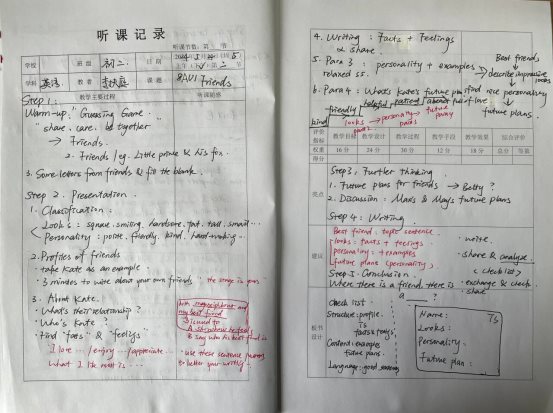 听课记录
听课节数：第 节
学校 班级 初二 日期
上午（下午）第 二 节
学科 英语 教者 课题 8AU1 Friends
教学主要过程 听课随感
Step 1:
Warm-up. "Guessing Game."
"share. care. be together
→ Friends.
2. Friends / eg. Little prince & his fox.
3. Some letters from friends & fill the blank.
Step 2. Presentation.
1. Classification:
Looks: square. smiling. handsome. fat. tall. small ...
Personality: polite. friendly. kind. hard-working ...
2. Profiles of friends
take Kate as an example.
3 minutes to write about your own friends
3. About Kate.
• What's their relationship?
• Who's Kate?
• Find "facts" & "feelings"
I love ... / enjoy ... / appreciate ...
What I like most is ...
my best friend
& say who his best friend is
• use these sentence patterns
to better your writing.
4. Writing: Facts + Feelings
& share.
5. Para 3: personality + examples
relaxed ss.
Best friends
→ describe impressive
looks
personality
future plans.
6. Para 4: What's Kate's future plans
friendly helpful patient
kind
looks → personality → future plans
评价指标 教学目标 教学设计 教学过程 教学手段 教学效果 综合评价
权重 16分 24分 30分 12分 18分 总分 等第
得分
亮点
Step 3: Further thinking
1. Future plans for friends → Betty?
2. Discussion: Max's & May's future plans
Step 4: Writing.
建议
Best friend: topic sentence
looks: facts + feelings
personality: + examples
future plans (personality)
• write
• share & analyse.
(checklist)
• exchange & check
• share
Step 5. Conclusion.
Where there is a friend, there is
a ?
板书设计
Check list
Structure: profile.
Ts
facts & feelings
Content: examples
future plans.
Language: good sentences
Name: Ts
Looks:
Personality:
Future plan: